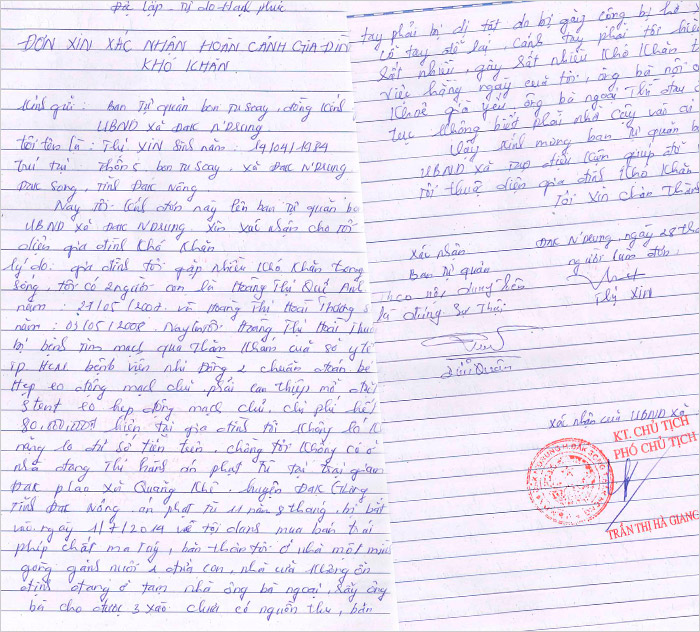 Độc lập - Tự do - Hạnh phúc
ĐƠN XIN XÁC NHẬN HOÀN CẢNH GIA ĐÌN
KHÓ KHĂN
Kính gửi: Ban Tự quản bon Tu Soay, đồng kính
UBND xã Đắk N'Drung
Tôi tên là: Thị XIN Sinh năm: 14/04/1984
Trú tại Thôn 5 bon Tu Soay, xã Đắk N'Drung
Đắk Song, Tỉnh Đắk Nông
Nay tôi kính đơn này lên ban Tự quản bo
UBND xã Đắk N'DRung xin xác nhận cho tôi
diện gia đình Khó Khăn
lý do: gia đình tôi gặp nhiều khó khăn trong
sống, tôi có 2 người con là Hoàng Thị Quế Anh
năm: 27/05/2007 và Hoàng Thị Hoài Thương s
năm: 03/05/2008. Nay Hoàng Thị Hoài Thươ
bị bệnh tim mạch qua thăm khám của sở y tế
TP HCM bệnh viện nhi Đồng 2 chuẩn đoán bé
Hẹp eo động mạch chủ, phải can thiệp mổ đặt
Stent eo hẹp động mạch chủ, chi phí hết
80.000.000đ hiện tại gia đình tôi không có k
năng lo đủ số tiền trên, chồng tôi không có ở
nhà đang thi hành án phạt tù tại trại giam
Đắk plao xã Quảng Khê, huyện Đắk Glong
Tỉnh Đắk Nông án phạt tù 11 năm 8 tháng, bị bắt
vào ngày 1/7/2019 với tội danh mua bán trái
phép chất ma Tuý, bản thân tôi ở nhà một mìn
gồng gánh nuôi 2 đứa con, nhà cửa không ổn
định đang ở tạm nhà ông bà ngoại, rẫy ông
bà cho được 3 xào chưa có nguồn thu, bản
tay phải bị dị tật do bị gãy cổng bị hở
cổ tay để lại, cánh tay phải tôi
rất nhiều, gây rất nhiều khó khăn t
việc hằng ngày của tôi, ông bà nội
khoẻ già yếu ông bà ngoại thì đau
tục không biết phải nhờ cậy vào
Vậy kính mong ban tự quản
UBND xã tạo điều kiện giúp đỡ
tôi thuộc diện gia đình khó khăn
Tôi xin chân thàn
Đắk N'Drung, ngày 28 thá
Xác nhận
Ban Tự quản
người làm đơn
Theo nội dung bên
là đúng sự thật
Thị XIN
Điểu Quân
Xác nhận của UBND xã
KT. CHỦ TỊCH
PHÓ CHỦ TỊCH
TRẦN THỊ HÀ GIANG